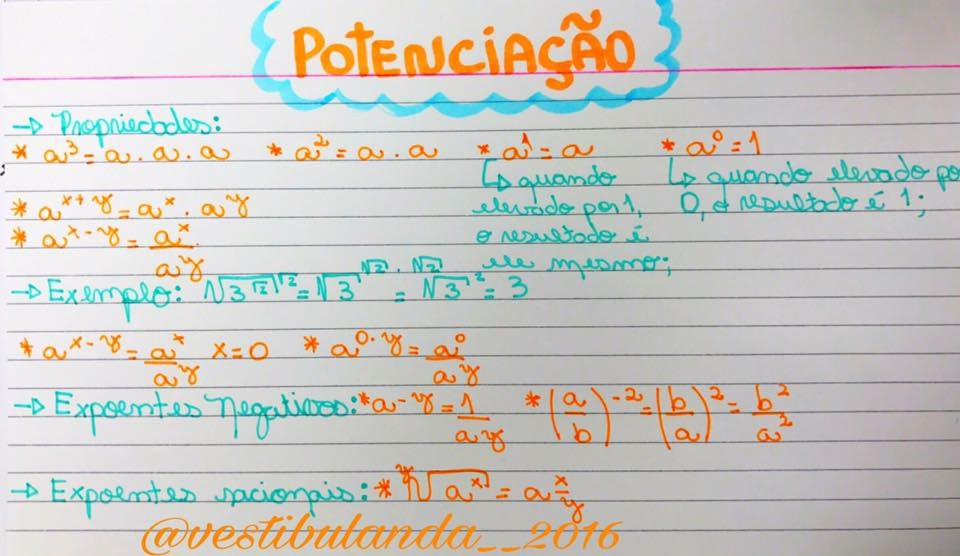 POTENCIAÇÃO
→ Propriedades:
* a³ = a . a . a * a² = a . a * a¹ = a * a⁰ = 1
↳ quando elevado por 1, o resultado é ele mesmo;
↳ quando elevado po 0, o resultado é 1;
* a^(x+y) = a^x . a^y
* a^(x-y) = a^x/a^y
→ Exemplo: √3^(√2)^(√2) = √3^(√2 . √2) = √3² = 3
* a^(x-y) = a^x/a^y x = 0 * a^(0-y) = a⁰/a^y
→ Expoentes Negativos: * a^(-y) = 1/a^y * (a/b)^(-2) = (b/a)² = b²/a²
→ Expoentes racionais: * ʸ√a^x = a^(x/y)
@vestibulanda__2016